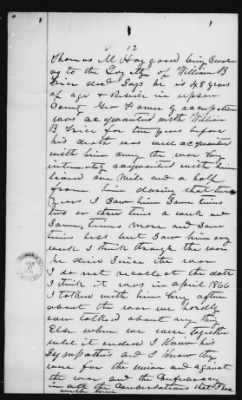 12
Thomas M Hagood being Sworn
as to the Loyalty of William B
Frier decd Says he is 48 years
of age & Resides in
County Geo Farmer by occupation
was acquainted with William
B Frier for ten years before
his death was well acquainted
with him during the war very
intimately acquainted with him
lived one Mile and a half
from him during that time
years I Saw him Some times
two or three times a week and
Some times more and Some
times less but Saw him every
week I think through the war
he died Since the war
I do not recollect the date
I think it was in april 1866
I talked with him very often
about the war we hardly
ever talked about any thing
Else when we were together
until it ended I know his
Sympathies and I know they
were for the union and against
the war and the Confederacy
in all the Conversations that I had
with him